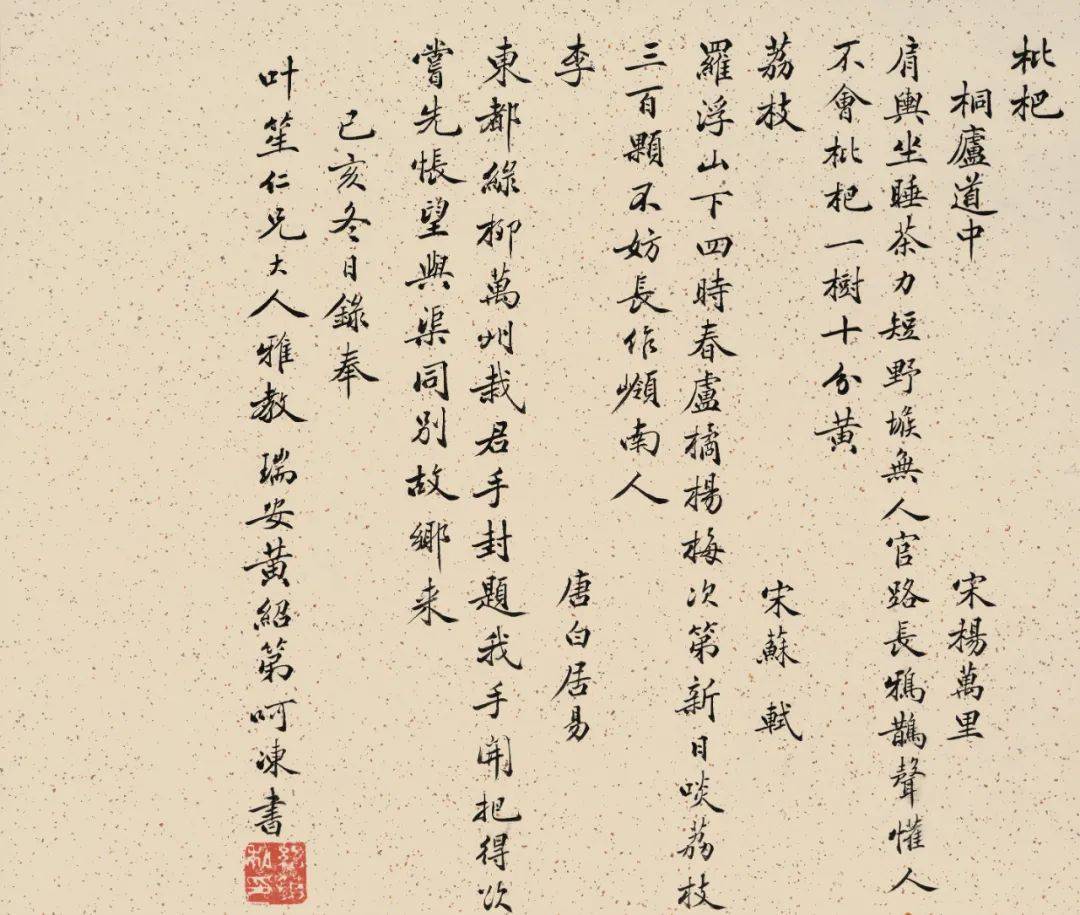 枇杷
桐廬道中 宋楊萬里
肩輿坐睡茶力短野堠無人官路長鴉鵲聲懽人
不會枇杷一樹十分黃
荔枝 宋蘇軾
羅浮山下四時春盧橘楊梅次第新日啖荔枝
三百顆不妨長作嶺南人
李 唐白居易
東都綠柳萬州栽君手封題我手開把得欲
嘗先悵望與渠同別故鄉来
己亥冬日錄奉
叶笙仁兄大人雅教 瑞安黃紹第呵凍書